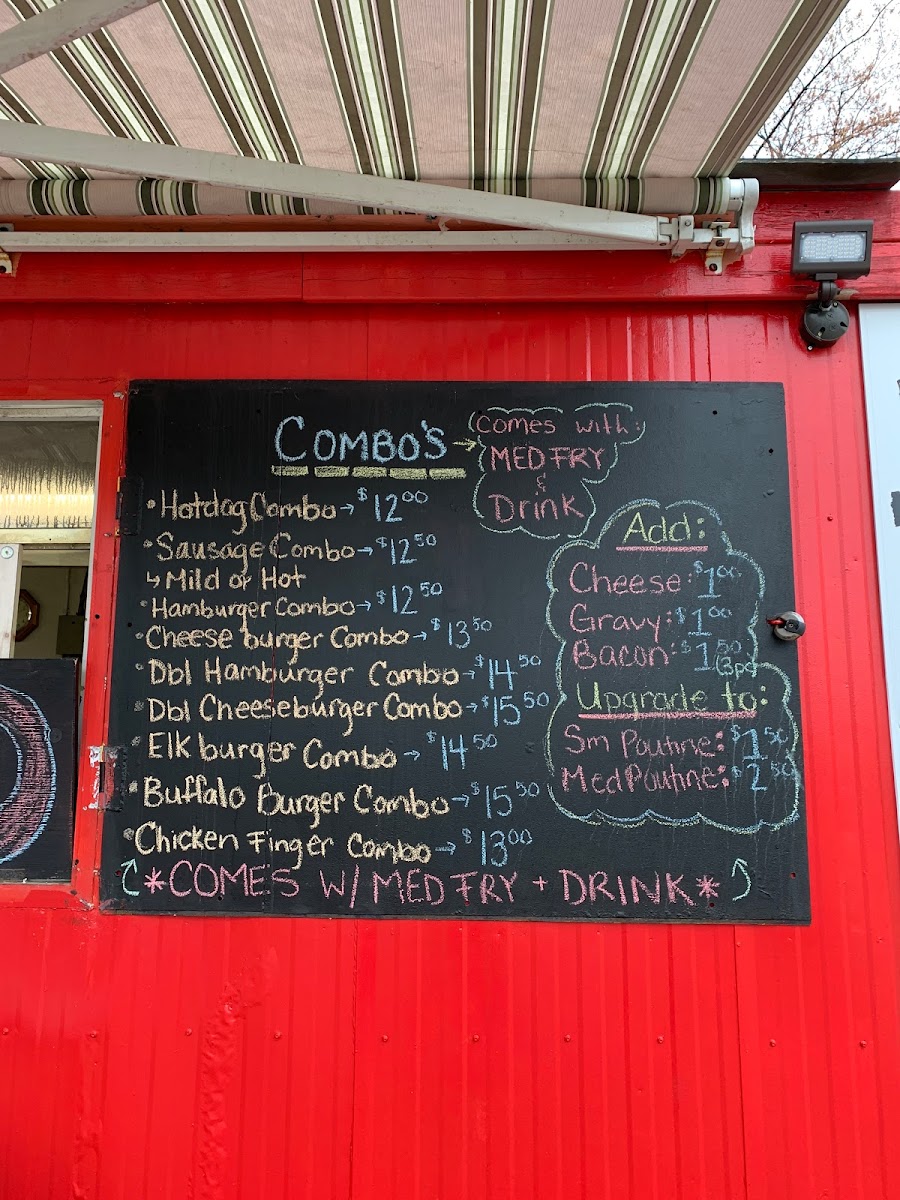 COMBO'S → Comes with:
MED FRY
&
Drink
• Hotdog Combo → $12⁰⁰
• Sausage Combo → $12⁵⁰
↳ Mild or Hot
• Hamburger Combo → $12⁵⁰
• Cheese burger Combo → $13⁵⁰
• Dbl Hamburger Combo → $14⁵⁰
• Dbl Cheeseburger Combo → $15⁵⁰
• Elk burger Combo → $14⁵⁰
• Buffalo Burger Combo → $15⁵⁰
• Chicken Finger Combo → $13⁰⁰
*COMES W/ MED FRY + DRINK*
Add:
Cheese: $1⁰⁰
Gravy: $1⁰⁰
Bacon: $1⁵⁰ (3pc)
Upgrade to:
Sm Poutine: $1⁵⁰
Med Poutine: $2⁵⁰